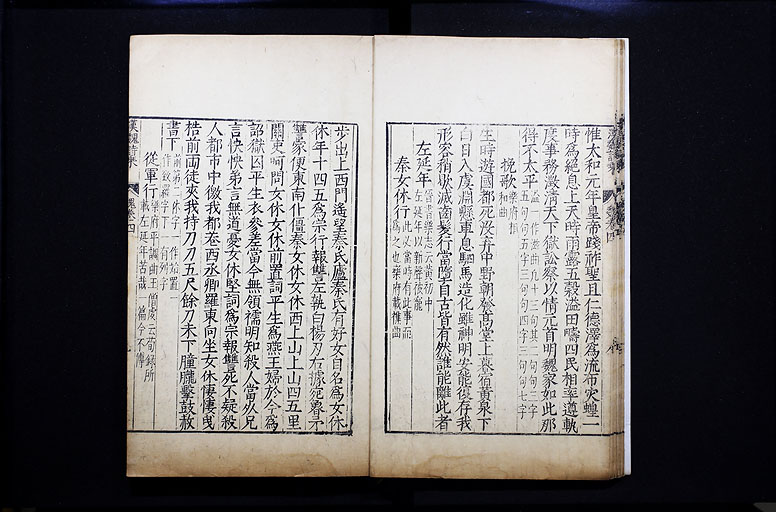 惟太和元年皇帝踐祚聖且仁德澤爲流布灾蝗一
時爲絕息上天時雨露五穀溢田疇四民相率遵軌
度事務澂清天下獄訟察以情元首明魏家如此那
得不太平
挽歌
生時遊國都死没弃中野朝發髙堂上暮宿黄泉下
白日入虞淵縣車息駟馬造化雖神明安能復存我
形容稍歇滅齒髮行當墮自古皆有然誰能離此者
左延年
秦女休行
步出上西門遥望秦氏廬秦氏有好女自名爲女休
休年十四五爲宗行報讐左執白楊刃右據宛魯矛
讐家便東南仆僵秦女休女休西上山上山四五里
關吏呵問女休女休前置詞平生爲燕王婦於今爲
詔獄囚平生衣參差當今無領襦明知殺人當死兄
言怏怏弟言無道憂女休堅詞爲宗報讐死不疑殺
人都市中徼我都巷西丞卿羅東向坐女休悽悽曵
梏前兩徒夾我持刀刀五尺餘刀未下朣朧擊鼓赦
書下
從軍行